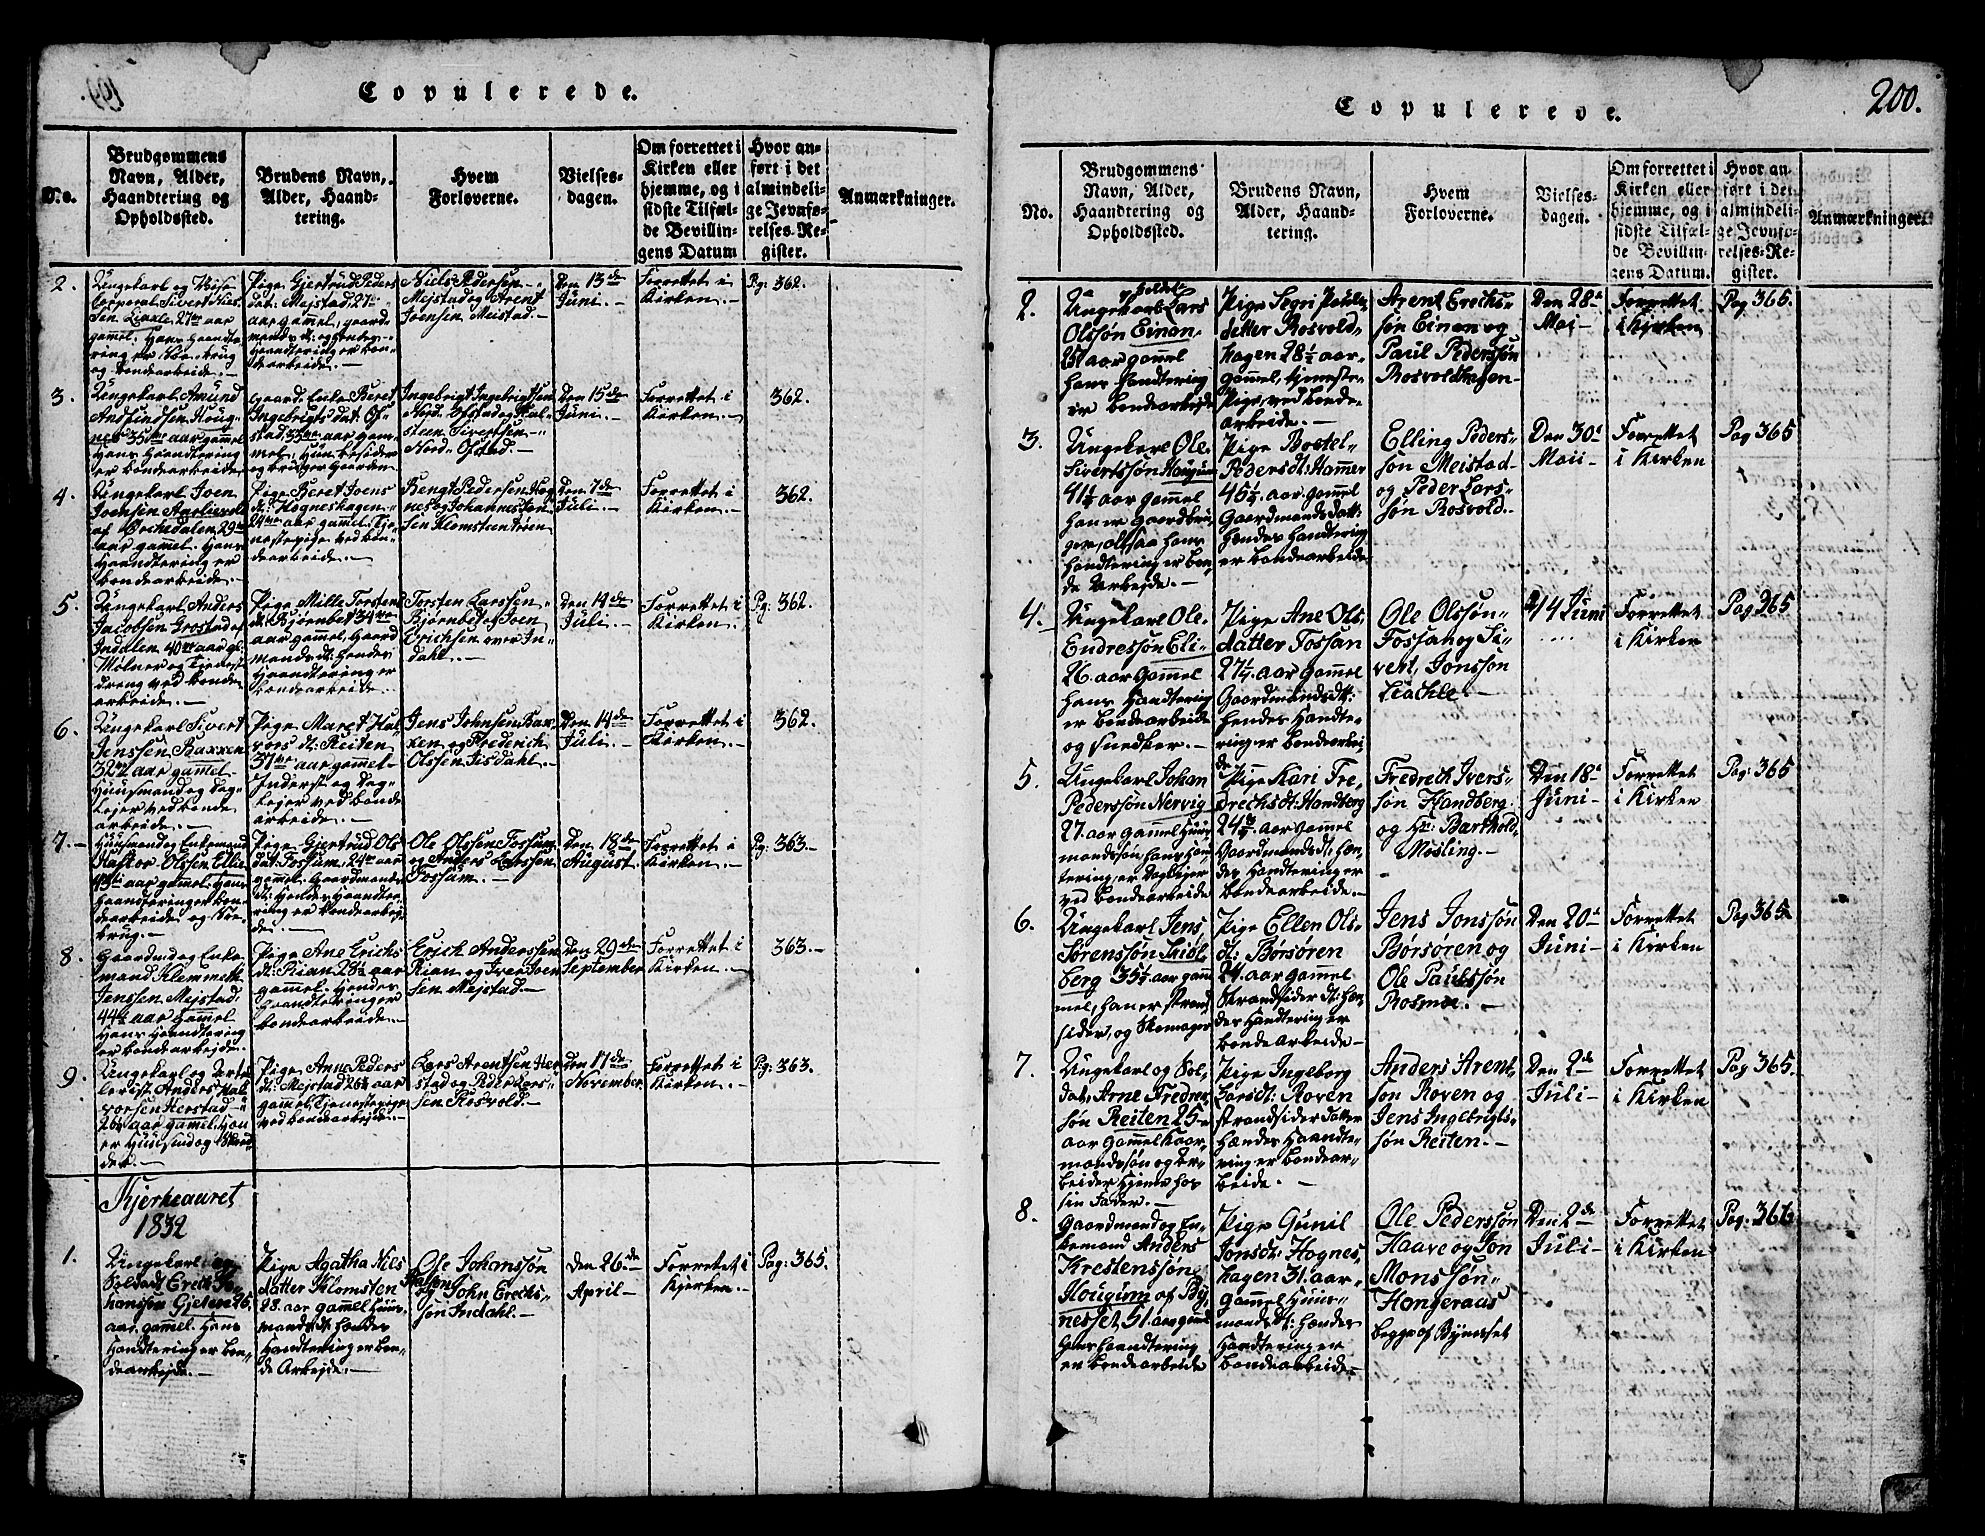 199.
Copulerede.
No.
Brudgommens
Navn, Alder,
Haandtering og
Opholdssted.
Brudens Navn,
Alder, Haand-
tering.
Hvem
Forloverne.
Vielses-
dagen.
Om forrettet i
Kirken eller
hjemme, og i
sidste Tilfæl-
de Bevillin-
gens Datum
Hvor an-
ført i det
almindeli-
ge Jevnfø-
relses-Re-
gister.
Anmærkninger.
2.
Ungekarl og
Corporal Sivert
Liaxle 27 aar
gammel. Hans Haandte-
ring er
og bondearbeide.-
Pige Gjertrud Peders
dat: Mejstad, 27
aar gammel, gaard-
mands dt: og hendes
Haandtering er bon-
dearbeide.-
Niels Pedersen
Mejstad og Arent
Joensen Meistad.-
Den 13de
Juni.-
Forrettet i
Kirken.-
Pg: 362.
3.
Ungekarl Amund
Amundsen Houg-
nes 35 aar gammel
Hans Haandtering
er bondearbeide.
Gaard Enke Beret
Ingebrigts dat. Of-
stad, 33 aar gam-
mel, Hun besidder
og bruger Gaarden
Ingebrigt Ingebrigtsen
Nord. Ofstad og Hal-
steen Sivertsen
Nord. Ofstad.-
Den 15de
Juni.-
Forrettet i
Kirken.-
362.
4.
Ungekarl Joen
Joensen
afØrchedalen 29
aar gammel. Hans
Haandtering er
bondearbeide.-
Pige Beret Joens
dt: Hogneshagen
24 aar gammel Tje-
nestepige ved bon-
dearbeide.-
Bengt Pedersen Hog
nes og Johannes Jen-
sen Klomsten
Den 7de
Juli.-
Forrettet i
Kirken.-
362.
5.
Ungekarl Anders
Jacobsen Grostad af
Indalen 40 aar g:
Mølner og Tjeneste
dreng ved bonde
arbeide.-
Pige Mille Torstens
dt: Bjørnbet 34
aar gammel Gaard
mands dt: hendes
Haandtering er
bondearbeide.
Torsten Larssen
Bjørnbet og Joen
Erichsen over In-
dahl.-
Den 14de
Juli.-
Forrettet i
Kirken.-
Pg: 362.
6.
Ungekarl Sivert
Jenssen Baxxen
32 aar gammel.
Huusmand og Dag-
lejer ved bonde
arbeide.-
Pige Maret Hal-
vors dt: Reiten
37 aar gammel
Inderst og Dag-
lejer ved bonde
arbeide.-
Jens Johnsen Bax-
xen og Frederich
Olssen Tisdahl.-
Den 14de
Juli.-
Forrettet i
Kirken.-
362.
7.-
Huusmand og Enkemand
Hastor Olssen Ellie
aar gammel. Hans
Haandtering er bon-
dearbeide og Sko-
brug.-
Pige Gjertrud Ols
dat: Fossum. 24 aar
gammel. Gaardmands
dt: Hendes Haandte-
ring er bondearbej-
de.-
Ole Olssen Fossum
og Anders Larssen
Fossum.-
Den 18de
August
Forrettet i
Kirken.-
Pg: 363.-
8.
Gaardmd og Enke
mand Klemmeth
Jenssen Mejstad
44½ aar Gammel
Hans Haandtering
er bondearbejde.
Pige Ane Erichs
dt: Rian 28½ aar
gammel. Hendes
Haandtering er
bondearbeide.-
Erich Anderssen
Rian og Iver Joen-
sen Mejstad.-
Den 29de
September
Forrettet i
Kirken.-
363.-
9.
Ungekarl og Artil
lerist Anders Hal-
vorsen Herstad
26½ aar gamel. Han
er Huusmd og Skred
der.-
Pige Anne Peders
dt: Mejstad 26½ aar
gammel, Tjenestepige
ved bondearbeide.-
Lars Arentsen Her
stad og Peder Lars-
sen Rosvold.-
Den 17de
November.
Forrettet i
Kirken.-
Pg: 363.
Kjerkeauret
1832
1.
Ungekarl og
Soldat Erech Jo-
hanssøn Gjeten 26.
aar gammel. Hans
Handtering er bon-
dearbejde.-
Pige Agatha Nils
datter Klomsten
28. aar gammel Huus-
mands dt: hendes
Handtering er bon-
de Arbejde.-
Ole Johanssøn
Haltens
og John Erechs-
søn Indahl.-
Den 26.de
April-
Forrettet i
Kjerken.-
Pag: 365.
200.
Copulerede.
No.
Brudgommens
Navn, Alder,
Haandtering og
Opholdssted.
Brudens Navn,
Alder, Haand-
tering.
Hvem
Forloverne.
Vielses-
dagen.
Om forrettet i
Kirken eller
hjemme, og i
sidste Tilfæl-
de Bevillin-
gens Datum.
Hvor an-
ført i det
almindeli-
ge Jevnfø-
relses-Re-
gister.
Anmærkninger.
2.
Ungekarl Lars
Olssøn Einan-
25½ aar gammel
hans Handtering
er bondearbejde
Pige Segri Pauls
datter Rosvold-
hagen 28½ aar-
gammel, tjeneste-
Pige ved bonde-
arbeide.-
Arent Erechs-
søn Einan og
Paul Pederssøn
Rosvoldhagen-
Den 28de
Mai-
Forrettet
i Kirken
Pag 365.
3.
Ungekarl Ole
Sivertssøn Hougum
41½ aar gammel
han er Gaardbru-
ger, altsaa hans
Handtering er bon-
de Arbejde.-
Pige Bostel-
Pedersdt: Hamer
45½. aar Gammel
Gaardmands datt:
hendes Handtering
er bondearbeide
Elling Peders-
søn Meistad-
og Peder Lars-
søn Rosvold.
Den 30te
Maii-
Forrettet
i Kirken
Pag 365
4.
Ungekarl Ole
Endressøn Eli-
26. aar Gammel
hans Handtering
er bondearbeide
og Snedker.-
Pige Ane Ols
datter Fossan
27½. aar Gammel
Gaardmandsdt:
hendes Handte-
ring er bondearbei
de
Ole Olssøn-
Fossan og Si-
vert, Jonssøn
Liachle.-
14 Juni
Forrettet
i Kirken
Pag 365
5.
Ungekarl Johan
Pederssøn Nervig
27. aar Gammel Huus
mandssøn, hans Han-
tering, er Dagleier
ved bondearbeide
Pige Kari Fre-
drechsdt: Handberg
24 aar Gammel
Gaardmandsdt: hen-
des Handtering er
bondearbeide.-
Fredrech Ivers-
søn Handberg
og Hr. Barthold
Møsling.-
Den 18de
Juni-
Forrettet
i Kirken
Pag: 365
6.
Ungekarl Jens
Sørenssøn
berg 35½ aar gamm
mel, han er strand
sider, og Skomager
Pige Ellen Ols-
dt: Børsören
24. aar Gammel
Strandsider dt: hen-
des Handtering er
bonde Arbeide-
Jens Jonssøn
Börsoren og
Ole Paulssøn
Rosmee.-
Den 20de
Juni-
Forrettet
i Kirken
Pag 365
7.
Ungekarl og Sol-
dat, Arne Fredrec
søn Reiten 25-
aar Gammel Gaar-
mandssøn og Ar-
beider Hjeme hos
sin Fader.-
Pige Ingeborg
Larsdt: Roven
Strandsider datter
Hendes Haandte-
ring er bondear-
beide.-
Anders Arent-
søn Roven og
Jens Ingebrigts-
søn Reiten.-
Den 2de
Juli-
Forrettet
i Kirken
Pag 365.
8.
Gaardmand og En-
kemand Anders
Krestenssøn
Hougum af By-
nesset 51. aar gammel
hans handtering
er bondearbeide
Pige Gunil
Jonsdt: Hognes-
hagen 31. aar-
Gammel Huus-
mandsdt: Hendes
Handtering er
bondearbeide-
Ole Pederssøn
Haave og Jon
Monssøn-
Hangeraas
begge af Bynesset
Den 2de
Juli-
Forrettet
i Kirken
Pag: 366